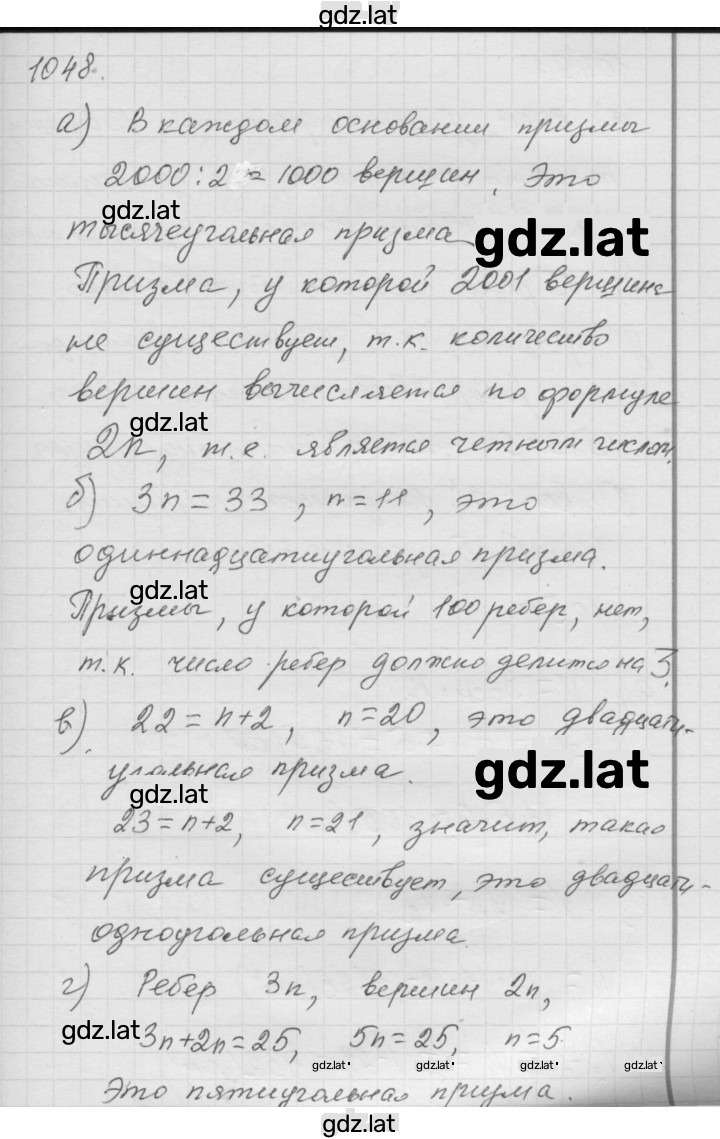 gdz.lat
1048.
а) В каждом основании призмы
2000:2 = 1000 вершин. Это
gdz.lat
тысячеугольная призма
gdz.lat
Призма, у которой 2001 вершина
не существует, т.к. количество
вершин вычисляется по формуле
gdz.lat
2n, т.е. является четным числом.
б) 3n = 33, n = 11, это
одиннадцатиугольная призма.
gdz.lat
Призмы, у которой 100 ребер, нет,
т.к. число ребер должно делится на 3.
в) 22 = n+2, n = 20, это двадцати-
угольная призма.
gdz.lat
gdz.lat
23 = n+2, n = 21, значит, такая
призма существует, это двадцати-
одноугольная призма.
г) Ребер 3n, вершин 2n,
gdz.lat
3n+2n = 25, 5n = 25, n = 5
gdz.lat gdz.lat gdz.lat gdz.lat
Это пятиугольная призма.
gdz.lat